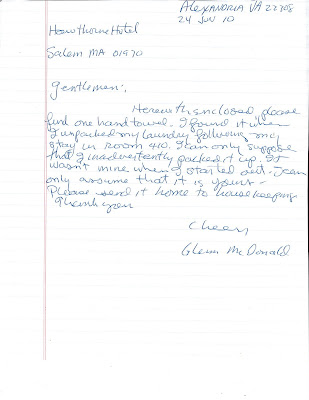 Alexandria VA 22308
24 Jun 10
Hawthorne Hotel
Salem MA 01970
Gentlemen:
Herewith enclosed, please
find one hand towel. I found it when
I unpacked my laundry following my
stay in room 410. I can only suppose
that I inadvertently packed it up. It
wasn't mine when I started out. I can
only assume that it is yours -
Please send it home to housekeeping
Thank you
Cheers
Glenn McDonald